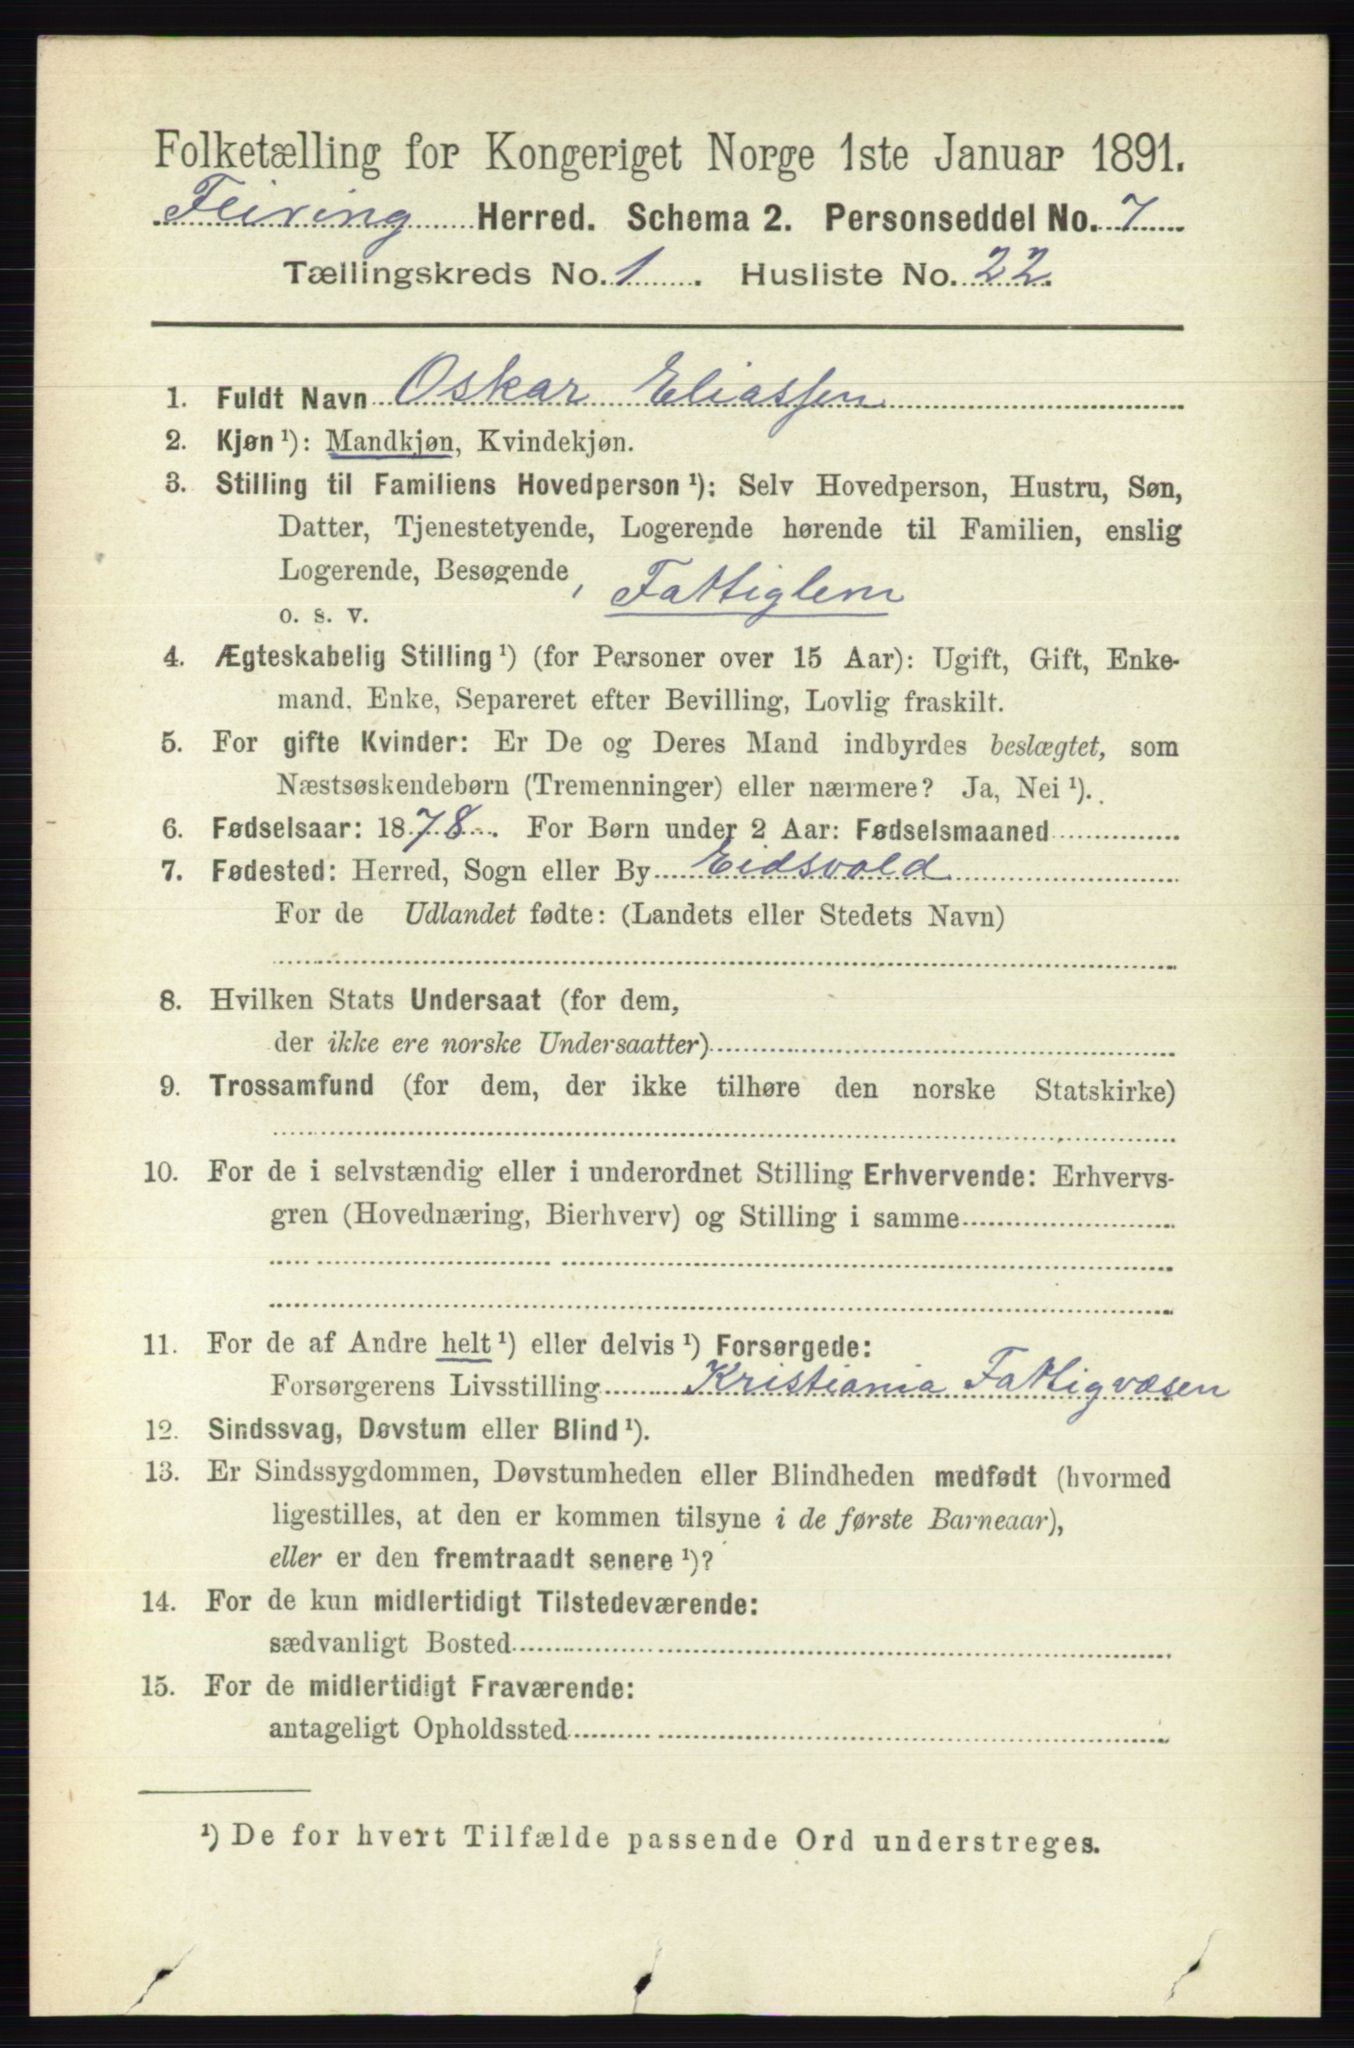 Folketælling for Kongeriget Norge 1ste Januar 1891.
Feiring Herred. Schema 2. Personseddel No. 7
Tællingskreds No. 1. Husliste No. 22.
1. Fuldt Navn Oskar Eliassen
2. Kjøn ¹): Mandkjøn, Kvindekjøn.
3. Stilling til Familiens Hovedperson ¹): Selv Hovedperson, Hustru, Søn,
Datter, Tjenestetyende, Logerende hørende til Familien, enslig
Logerende, Besøgende, Fattiglem
o. s. v.
4. Ægteskabelig Stilling ¹) (for Personer over 15 Aar): Ugift, Gift, Enke-
mand, Enke, Separeret efter Bevilling, Lovlig fraskilt.
5. For gifte Kvinder: Er De og Deres Mand indbyrdes beslægtet, som
Næstsøskendebørn (Tremenninger) eller nærmere? Ja, Nei ¹).
6. Fødselsaar: 1878. For Børn under 2 Aar: Fødselsmaaned
7. Fødested: Herred, Sogn eller By Eidsvold
For de Udlandet fødte: (Landets eller Stedets Navn)
8. Hvilken Stats Undersaat (for dem,
der ikke ere norske Undersaatter)
9. Trossamfund (for dem, der ikke tilhøre den norske Statskirke)
10. For de i selvstændig eller i underordnet Stilling Erhvervende: Erhvervs-
gren (Hovednæring, Bierhverv) og Stilling i samme
11. For de af Andre helt ¹) eller delvis ¹) Forsørgede:
Forsørgerens Livsstilling Kristiania Fattigvæsen
12. Sindssvag, Døvstum eller Blind ¹).
13. Er Sindssygdommen, Døvstumheden eller Blindheden medfødt (hvormed
ligestilles, at den er kommen tilsyne i de første Barneaar),
eller er den fremtraadt senere ¹)?
14. For de kun midlertidigt Tilstedeværende:
sædvanligt Bosted
15. For de midlertidigt Fraværende:
antageligt Opholdssted
¹) De for hvert Tilfælde passende Ord understreges.